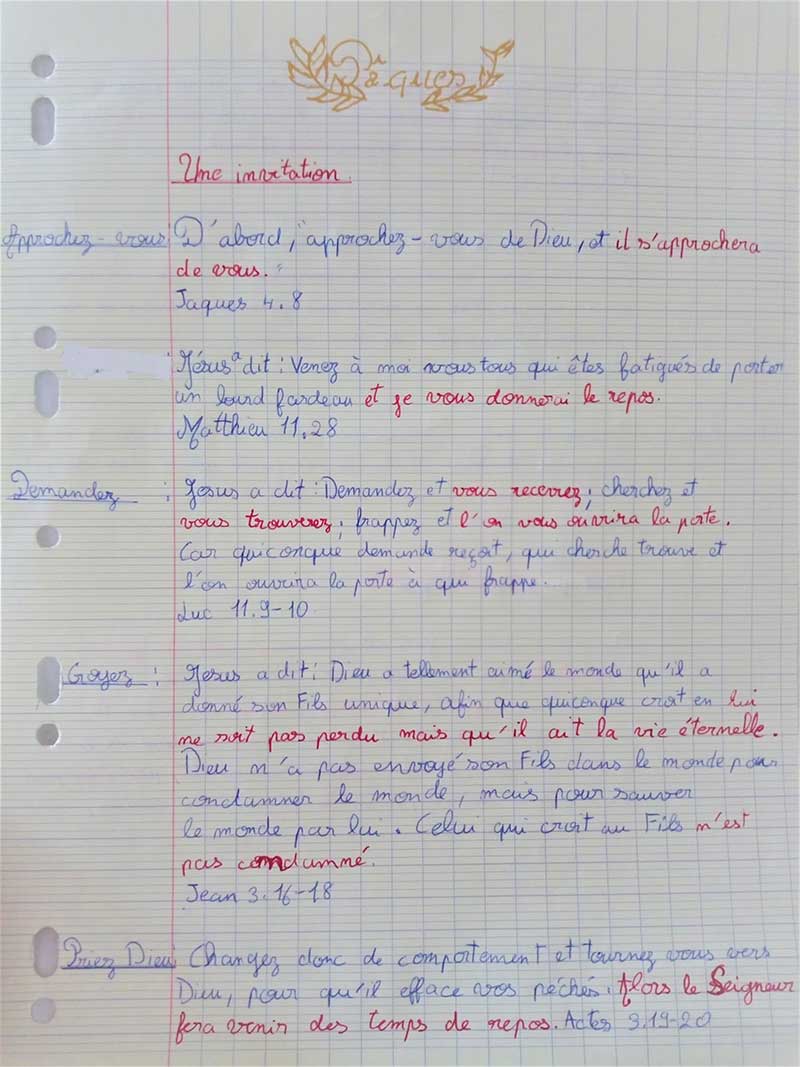 Pâques
Une invitation.
Approchez-vous D'abord, "approchez-vous de Dieu, et il s'approchera
de vous."
Jaques 4.8
Jésus a dit : Venez à moi vous tous qui êtes fatigués de porter
un lourd fardeau et je vous donnerai le repos.
Matthieu 11.28
Demandez : Jesus a dit : Demandez et vous recevrez ; cherchez et
vous trouverez ; frappez et l'on vous ouvrira la porte.
Car quiconque demande reçoit, qui cherche trouve et
l'on ouvrira la porte à qui frappe.
Luc 11.9-10
Croyez : Jesus a dit : Dieu a tellement aimé le monde qu'il a
donné son Fils unique, afin que quiconque croit en lui
ne soit pas perdu mais qu'il ait la vie éternelle.
Dieu n'a pas envoyé son Fils dans le monde pour
condamner le monde, mais pour sauver
le monde par lui. Celui qui croit au Fils n'est
pas condamné.
Jean 3.16-18
Priez Dieu Changez donc de comportement et tournez vous vers
Dieu, pour qu'il efface vos péchés. Alors le Seigneur
fera venir des temps de repos. Actes 3.19-20